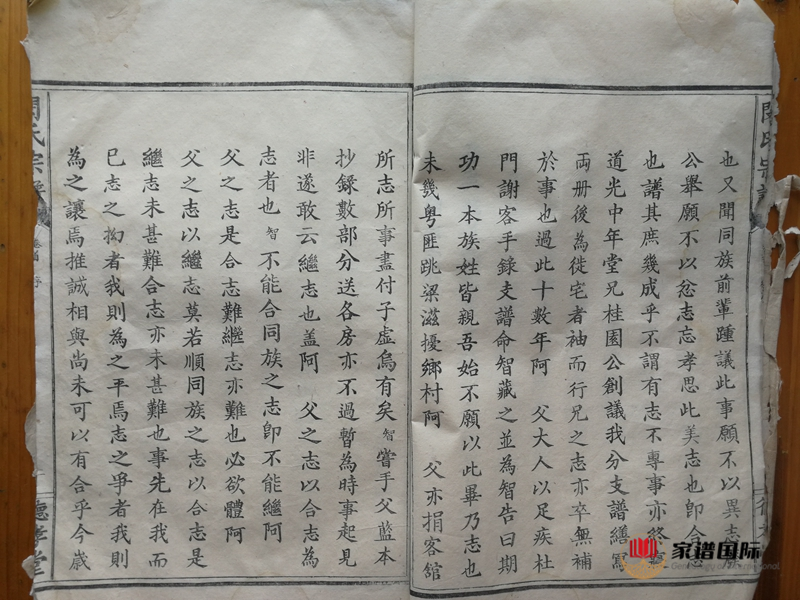 也又聞同族前輩踵議此事願不以異志
公舉願不以忿志忘孝思此美志也卽合志
也譜其庶幾成乎不謂有志不專事亦終
道光中年堂兄桂園公創議我分支譜繕寫
両册後為徙宅者袖而行兄之志亦卒無補
於事也過此十數年阿 父大人以足疾杜
門謝客手錄支譜命智藏之並為智告曰期
功一本族姓皆親吾始不願以此畢乃志也
未幾粤匪跳梁滋擾鄉村阿 父亦捐客舘
所志所事盡付子虛烏有矣智嘗手父藍本
抄錄數部分送各房亦不過暫為時事起見
非遂敢云繼志也盖阿 父之志以合志為
志者也智不能合同族之志卽不能繼阿
父之志是合志難繼志亦難也必欲體阿
父之志以繼志莫若順同族之志以合志是
繼志未甚難合志亦未甚難也事先在我而
已志之拗者我則為之平焉志之爭者我則
為之讓焉推誠相與尚未可以有合乎今歲
氏宗譜
德孝堂
家谱国际